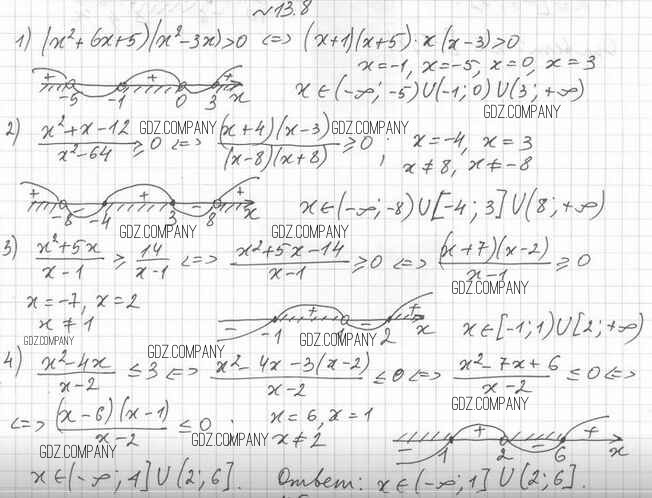 №13.8
1) (x²+6x+5)(x²-3x)>0 <=> (x+1)(x+5)·x(x-3)>0
x=-1, x=-5, x=0, x=3
+ - + - +
-5 -1 0 3 x
x∈(-∞;-5)∪(-1;0)∪(3;+∞)
GDZ.COMPANY
2) (x²+x-12)/(x²-64) ≥ 0 <=> ((x+4)(x-3))/((x-8)(x+8)) ≥ 0; x=-4, x=3
GDZ.COMPANY GDZ.COMPANY
x≠8, x≠-8
GDZ.COMPANY
+ - + - +
-8 -4 3 8 x
x∈(-∞;-8)∪[-4;3]∪(8;+∞)
GDZ.COMPANY GDZ.COMPANY
3) (x²+5x)/(x-1) ≥ 14/(x-1) <=> (x²+5x-14)/(x-1) ≥ 0 <=> ((x+7)(x-2))/(x-1) ≥ 0
GDZ.COMPANY
x=-7, x=2
x≠1
- + - +
-1 1 2 x
x∈[-1;1)∪[2;+∞)
GDZ.COMPANY GDZ.COMPANY
GDZ.COMPANY
4) (x²-4x)/(x-2) ≤ 3 <=> (x²-4x-3(x-2))/(x-2) ≤ 0 <=> (x²-7x+6)/(x-2) ≤ 0 <=>
GDZ.COMPANY
<=> ((x-6)(x-1))/(x-2) ≤ 0; x=6, x=1
x≠2
- + - +
1 2 6 x
GDZ.COMPANY GDZ.COMPANY
x∈(-∞;1]∪(2;6]. Ответ: x∈(-∞;1]∪(2;6].